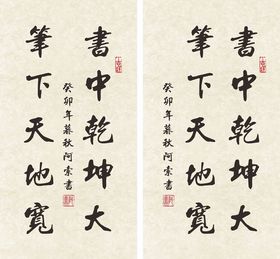 書中乾坤大
筆下天地寬
癸卯年暮秋阿索書
書中乾坤大
筆下天地寬
癸卯年暮秋阿索書